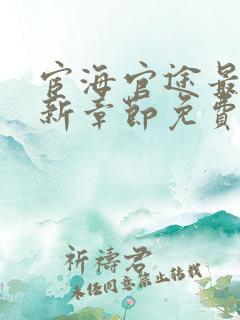 宦海官途最
新章節免費
祈禱君
未经同意禁止转载